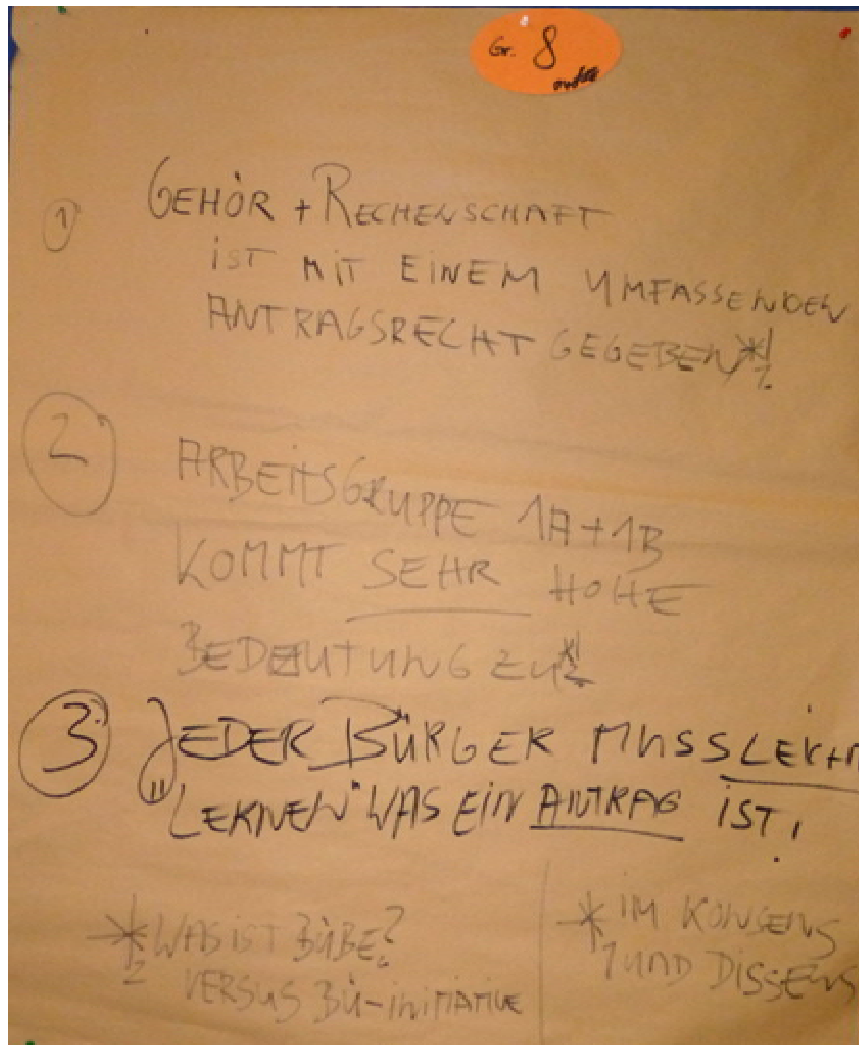 Gr. 8
1 GEHÖR + RECHENSCHAFT
IST MIT EINEM UMFASSENDEN
ANTRAGSRECHT GEGEBEN *1!
2 ARBEITSGRUPPE 1A + 1B
KOMMT SEHR HOHE
BEDEUTUNG ZU *2!
3 JEDER BÜRGER MUSS
"LERNEN" WAS EIN ANTRAG IST!
*2 WAS IST BÜBE?
VERSUS BÜ-INITIATIVE
*1 IM KONSENS
UND DISSENS